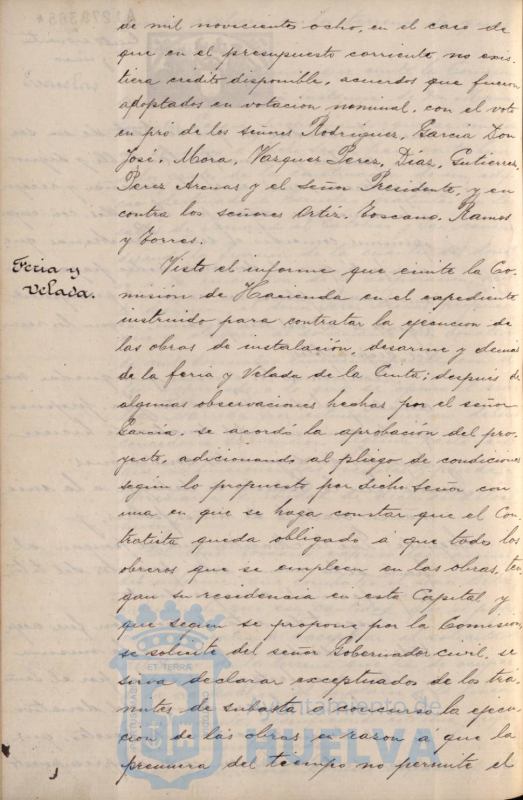 de mil novecientos ocho, en el caso de
que en el presupuesto corriente no exis-
tiera crédito disponible, acuerdos que fueron
adoptados en votacion nominal, con el voto
en pró de los señores Rodriguez, Garcia Don
José, Mora, Vazquez Perez, Díaz, Gutierrez,
Perez Arenas y el señor Presidente, y en
contra los señores Ortiz, Toscano, Ramos
y Torres.
Feria y
Velada.
Visto el informe que emite la Co-
misión de Hacienda en el expediente
instruido para contratar la ejecucion de
las obras de instalación, desarme y demas
de la feria y Velada de la Cinta; después de
algunas observaciones hechas por el señor
García, se acordó la aprobación del pro-
yecto, adicionando al pliego de condiciones
según lo propuesto por dicho Señor con
una en que se haga constar que el Con-
tratista queda obligado a que todos los
obreros que se empleen en las obras, ten-
gan su residencia en esta Capital y
que segun se propone por la Comision,
se solicite del señor Gobernador civil, se
sirva declarar exceptuados de los trá-
mites de subasta ó concurso la ejecu-
cion de las obras en razon a que la
premura del tiempo no permite el
PORTUS MARIS
ET TERRÆ
CUSTODIA
Ayuntamiento de
HUELVA